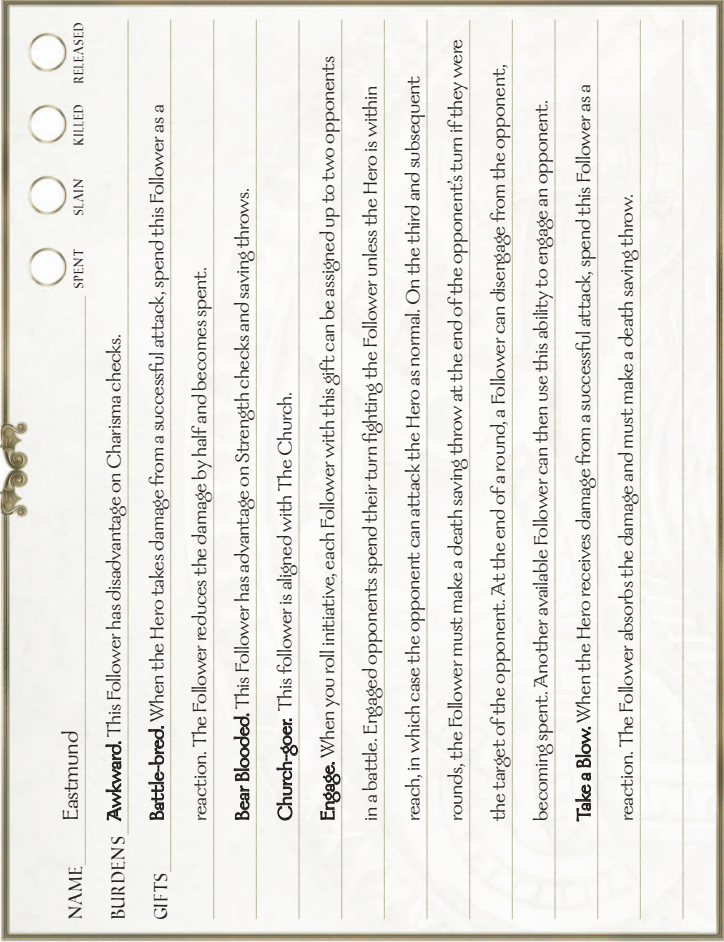 NAME Eastmund
SPENT SLAIN KILLED RELEASED
BURDENS Awkward. This Follower has disadvantage on Charisma checks.
GIFTS Battle-bred. When the Hero takes damage from a successful attack, spend this Follower as a
reaction. The Follower reduces the damage by half and becomes spent.
Bear Blooded. This Follower has advantage on Strength checks and saving throws.
Church-goer. This follower is aligned with The Church.
Engage. When you roll initiative, each Follower with this gift can be assigned up to two opponents
in a battle. Engaged opponents spend their turn fighting the Follower unless the Hero is within
reach, in which case the opponent can attack the Hero as normal. On the third and subsequent
rounds, the Follower must make a death saving throw at the end of the opponent's turn if they were
the target of the opponent. At the end of a round, a Follower can disengage from the opponent,
becoming spent. Another available Follower can then use this ability to engage an opponent.
Take a Blow. When the Hero receives damage from a successful attack, spend this Follower as a
reaction. The Follower absorbs the damage and must make a death saving throw.